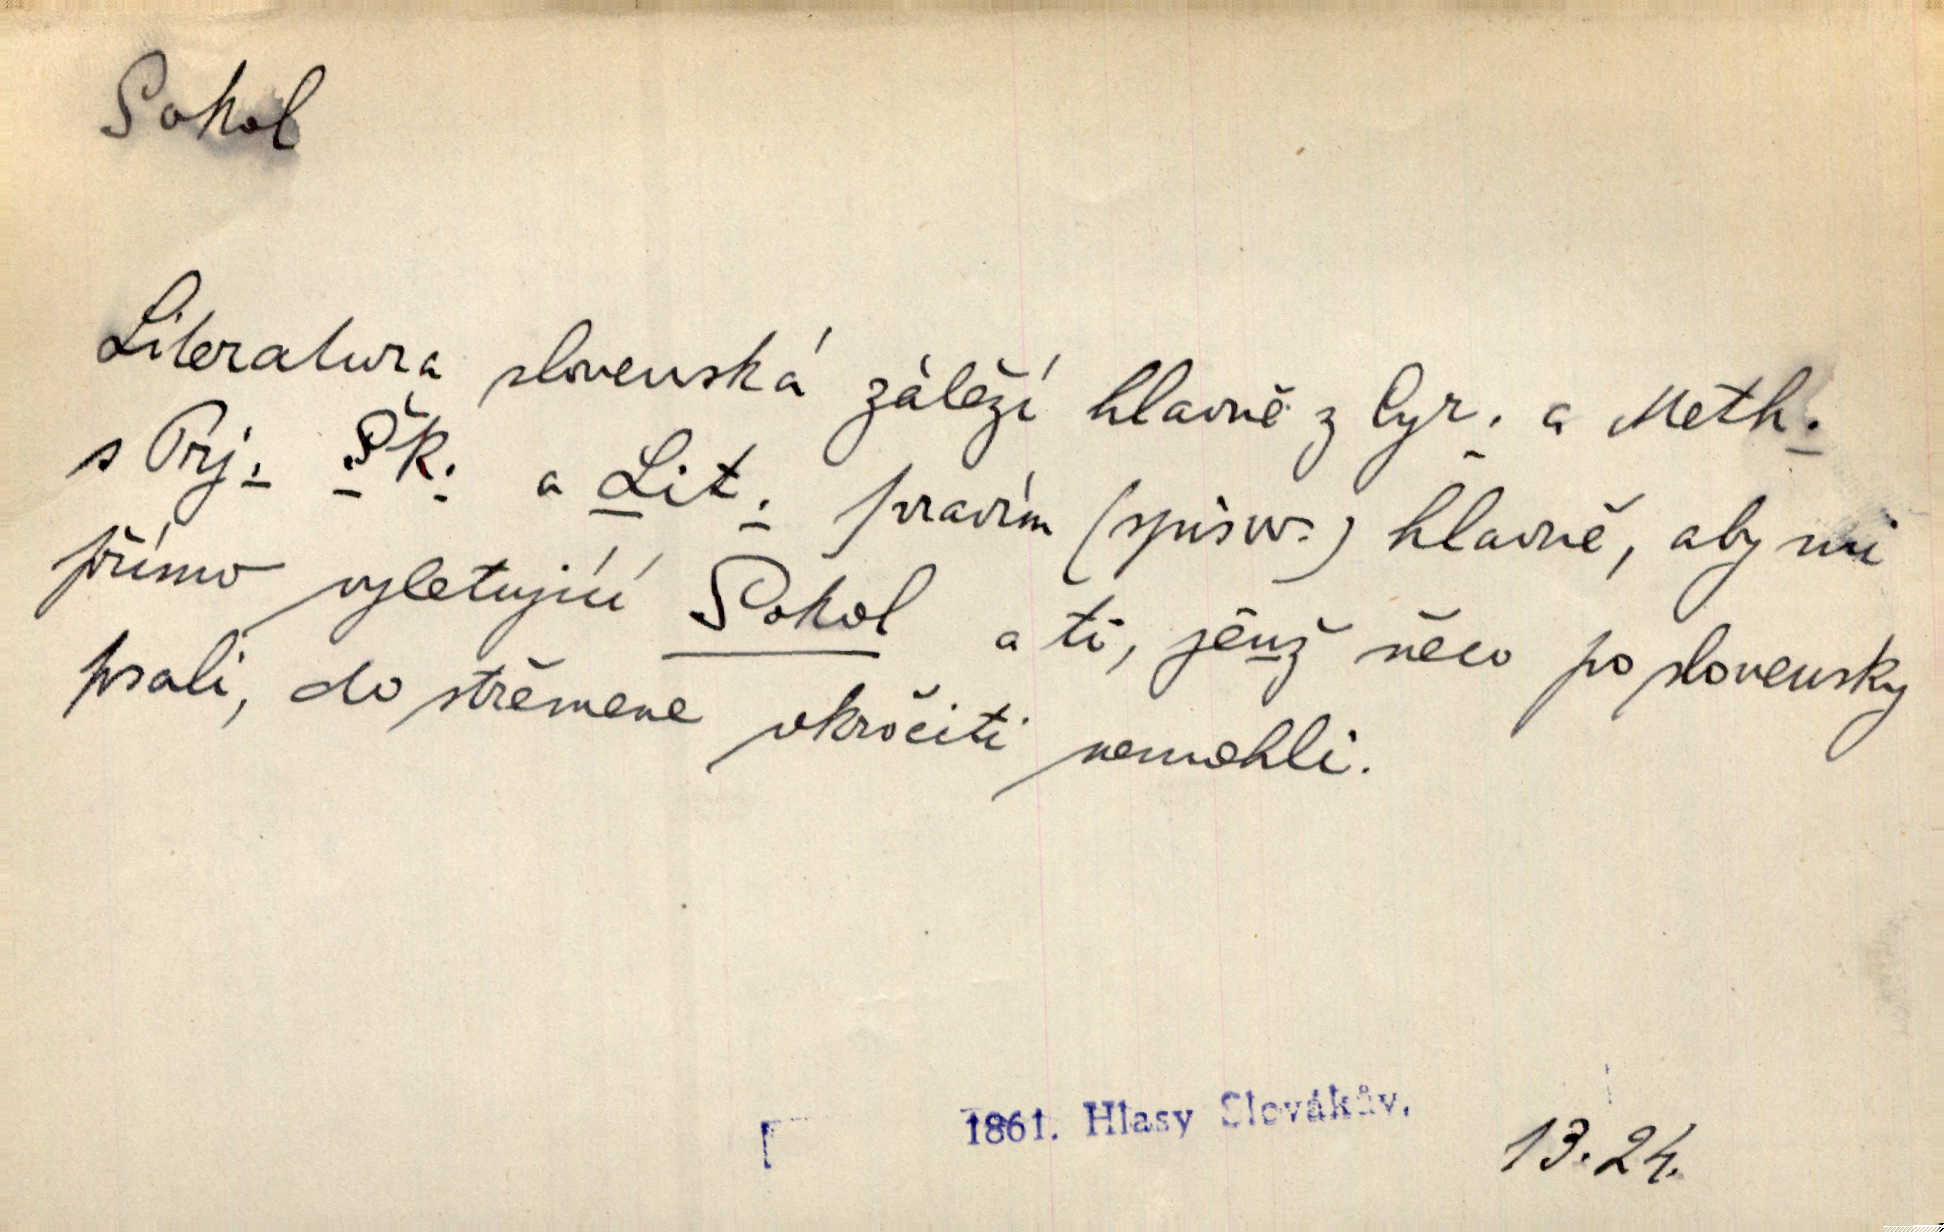 Sokol
Literatura slovenská záleží hlavně z Cyr. a Meth.
s Prj. Šk. a Lit. pravím (spisov.) hlavně, aby mi
přímo vyletující Sokol a ti, jenž něco po slovensky
psali, do střemene vkročiti nemohli.
1861. Hlasy Slovákův.
13.24.